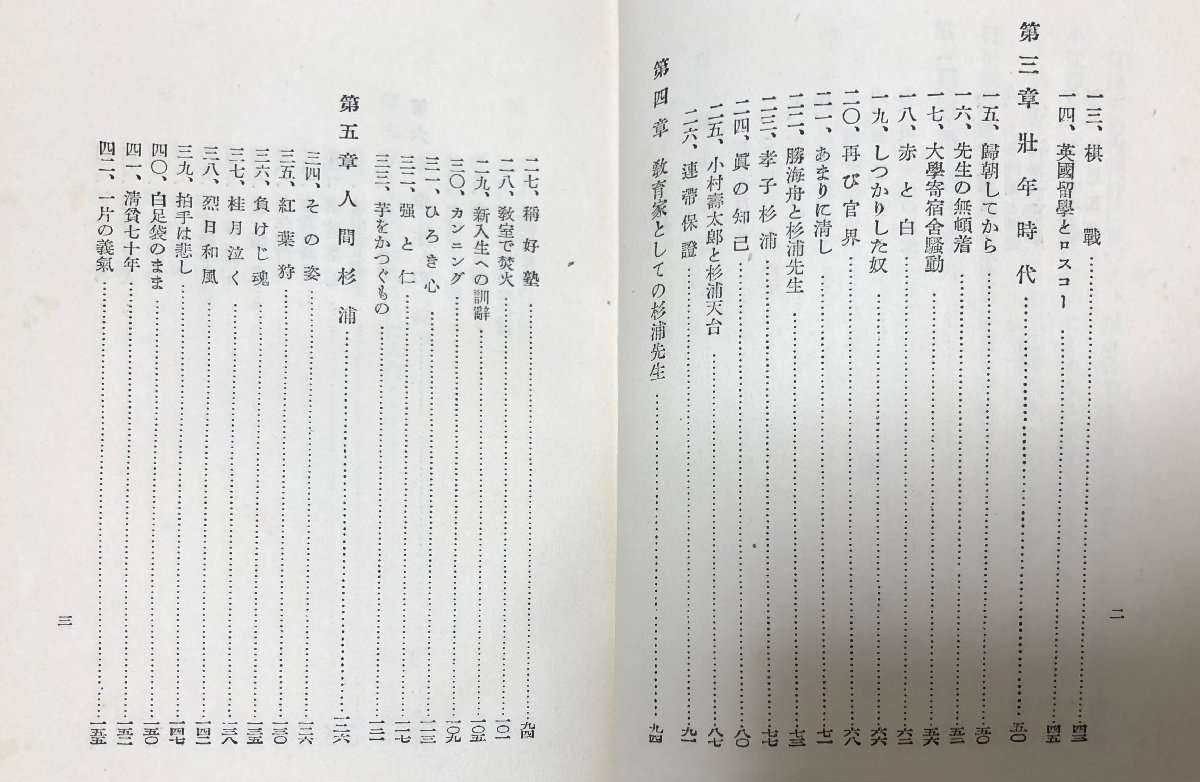 一三、棋戰……四三
一四、英國留學とロスコー……四五
第三章 壯年時代……五〇
一五、歸朝してから……五〇
一六、先生の無頓着……五二
一七、大學寄宿舍騷動……五六
一八、赤と白……六二
一九、しつかりした奴……六六
二〇、再び官界……六八
二一、あまりに淸し……七一
二二、勝海舟と杉浦先生……七三
二三、孝子杉浦……七七
二四、眞の知己……八〇
二五、小村壽太郎と杉浦天台……八七
二六、連帶保證……九一
第四章 敎育家としての杉浦先生……九四
二
二七、稱好塾……九四
二八、敎室で焚火……一〇一
二九、新入生への訓辭……一〇五
三〇、カンニング……一〇九
三一、ひろき心……一一三
三二、强と仁……一一七
三三、芋をかつぐもの……一二二
第五章 人間杉浦……一二六
三四、その姿……一二六
三五、紅葉狩……一三〇
三六、負けじ魂……一三五
三七、桂月泣く……一三八
三八、烈日和風……一四二
三九、拍手は悲し……一四七
四〇、白足袋のまま……一五〇
四一、淸貧七十年……一五二
四二、一片の義氣……一五五
三